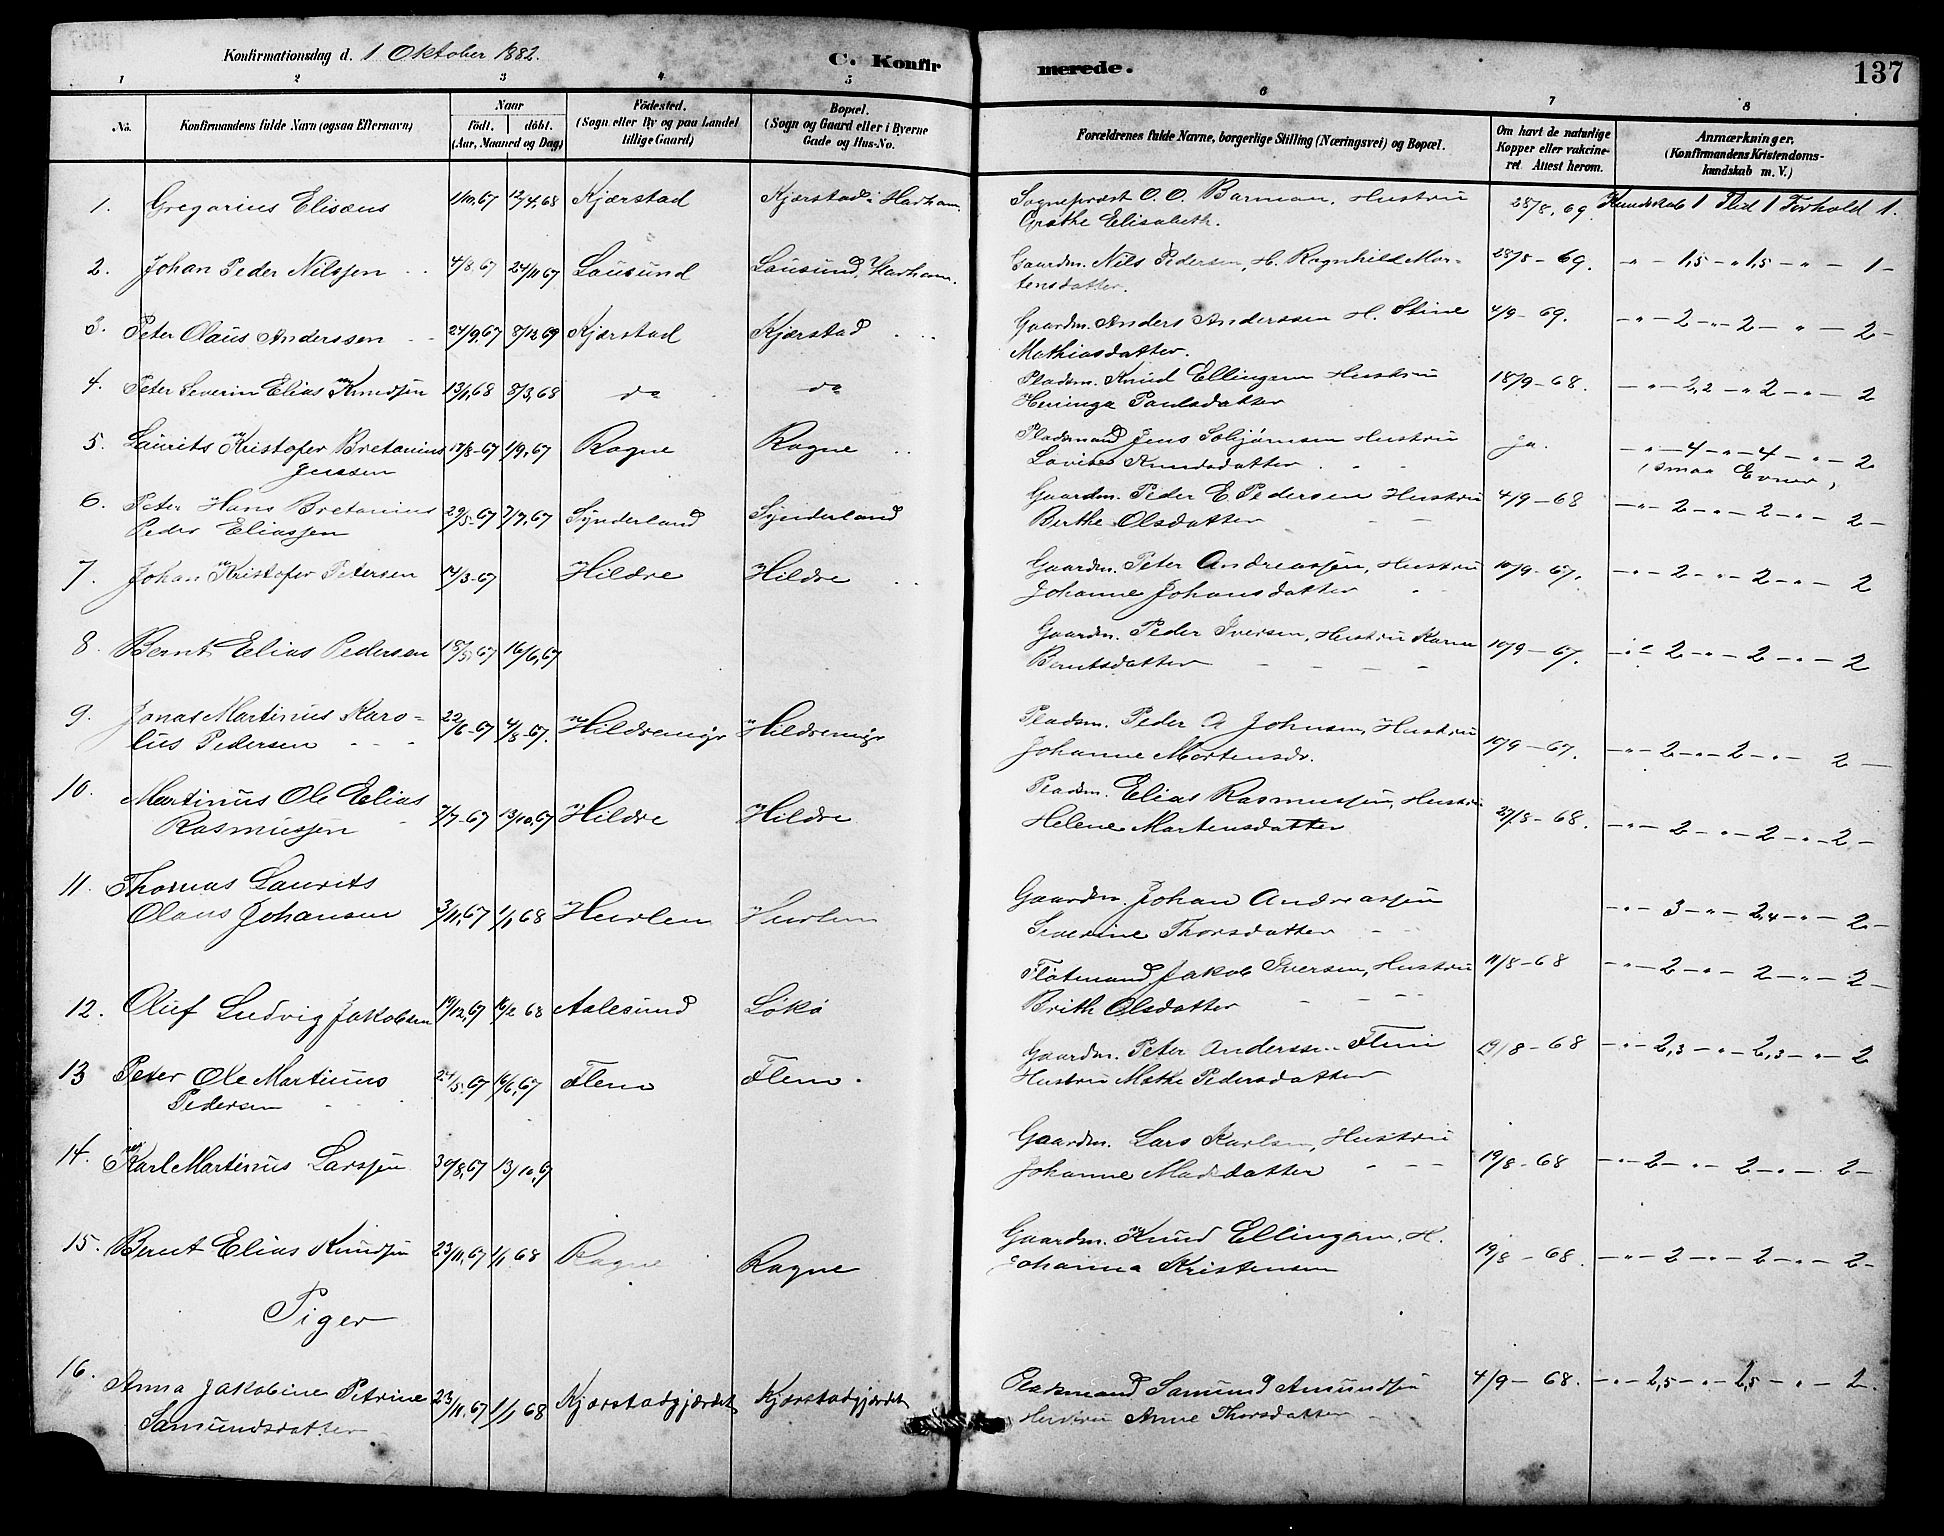 Konfirmationsdag d. 1 Oktober 1882.
C. Konfirmerede.
137
1 2 3 4 5 6 7 8
No.
Konfirmandens fulde Navn (ogsaa Efternavn)
Naar
födt. döbt.
(Aar, Maaned og Dag)
Födested.
(Sogn eller By og paa Landet
tillige Gaard)
Bopæl.
(Sogn og Gaard eller i Byerne
Gade og Hus-No.
Forældrenes fulde Navne, borgerlige Stilling (Næringsvei) og Bopæl.
Om havt de naturlige
Kopper eller vakcine-
ret. Attest herom.
Anmærkninger.
(Konfirmandens Kristendoms-
kundskab m. V.)
1. Gregorius Elisæus 12/4,68 Kjærstad Kjærstad i Harham. Sognepræst O. O. Barman, Hustru 28/8, 69. Kundskab 1 Flid 1 Forhold 1.
Grethe Elisabeth.
2. Johan Peder Nilssen 4/8 67 24/11 67 Lausund Lausund, Harham. Gaardm. Nils Pedersen, H. Ragnhild Mor- 28/8 - 69. - " - 1,5 - " 1,5 - " - 1 -
tensdatter.
3. Peter Olaus Anderssen 24/9,67 8/12 69 Kjærstad Kjærstad Gaardm. Anders Anderssen H. Stine 4/9 - 69. - " - 2 - " - 2 - " - 2 -
Mathiasdatter.
4. Peter Severin Elias Knudsen 12/1,68 8/3,68 do do Pladsm. Knud Ellingsen Hustru 18/9 - 68. - " - 2,2 - " 2 - " - 2
Paulsdatter
5. Laurits Kristofer Bretanius 1/9,67 Rogne Rogne Pladsmand Jens Hustru Ja. - " - 4 - " - 4 - " - 2
Jenssen Lovise Knudsdatter (smaa Evner)
6. Peter Hans Bretanius 29/5-67 7/7,67 Synderland Synderland Gaardm. Peder E. Pedersen Hustru 4/9 - 68 - " - 2 - " - 2 - " - 2 -
Peder Eliassen Berthe Olsdatter
7. Johan Kristofer Petersen 14/3-67 Hildre Hildre Gaardm. Peter Andreassen, Hustru 10/9 - 67. - " - 2 - " - 2 - " - 2
Johanne Johansdatter
8. Bernt Elias Pedersen 18/5,67 16/6,67 Gaardm. Peder Iversen, Hustru Karen 10/9 - 67. - " - 2 - " - 2 - " - 2
Berntsdatter
9. Jonas Martinus Karo- 22/6-67 4/8-67. Hildremyr Hildremyr Pladsm. Peder A Johnsen, Hustru 10/9 - 67. - " - 2 - " - 2 - " - 2 -
lus Pedersen Johanne Mortensdr.
10. Martinus Ole Elias 7/7-67 13/10,67 Hildre Hildre Pladsm. Elias Rasmussen, Hustru 27/8 - 68. - " - 2 - " - 2 - " - 2 -
Rasmussen Helene Martensdatter
11. Thomas Laurits 3/11,67 1/1 68 Hurlen Hurlen Gaardm. Johan Andreassen - " - 3 - " - 2,4 - " - 2 -
Olaus Johansen Severine Thorsdatter
12. Oluf Ludvig Jakobsen 19/12,67 16/2 68 Aalesund Lökö Flötmand Jakob Iversen, Hustru 11/8 - 68 - " - 2 - " - 2 - " - 2 -
Brith Olsdatter
13 Peter Ole Martinus 24/5-67 16/6,67 Flem Flem. Gaardm. Peter Anderssen Flem 19/8 - 68 - " - 2,3 - " - 2,3 - " - 2
Pedersen Hustru Mathe Pedersdatter
14. Karl Martinus Larssen 30/8,67 13/10,67 Gaardm. Lars Karlsen, Hustru 19/8 - 68 - " - 2 - " - 2 - " - 2 -
Johanne Madsdatter
15. Bernt Elias Knudsen 23/11,67 1/1 68 Rogne Rogne Gaardm. Knud Ellingsen, H. 19/8 - 68. - " - 2 - " - 2 - " - 2 -
Johanna Kristensen
Piger
16. Anna Jakobine Petrine 23/11,67 1/1 68 Kjærstadgjærdet Kjærstadgjærdet Pladsmand Samund Amundsen 4/9 - 68. - " - 2,5 - " - 2,5 - " - 2.
Samundsdatter Hustru Anne Thorsdatter